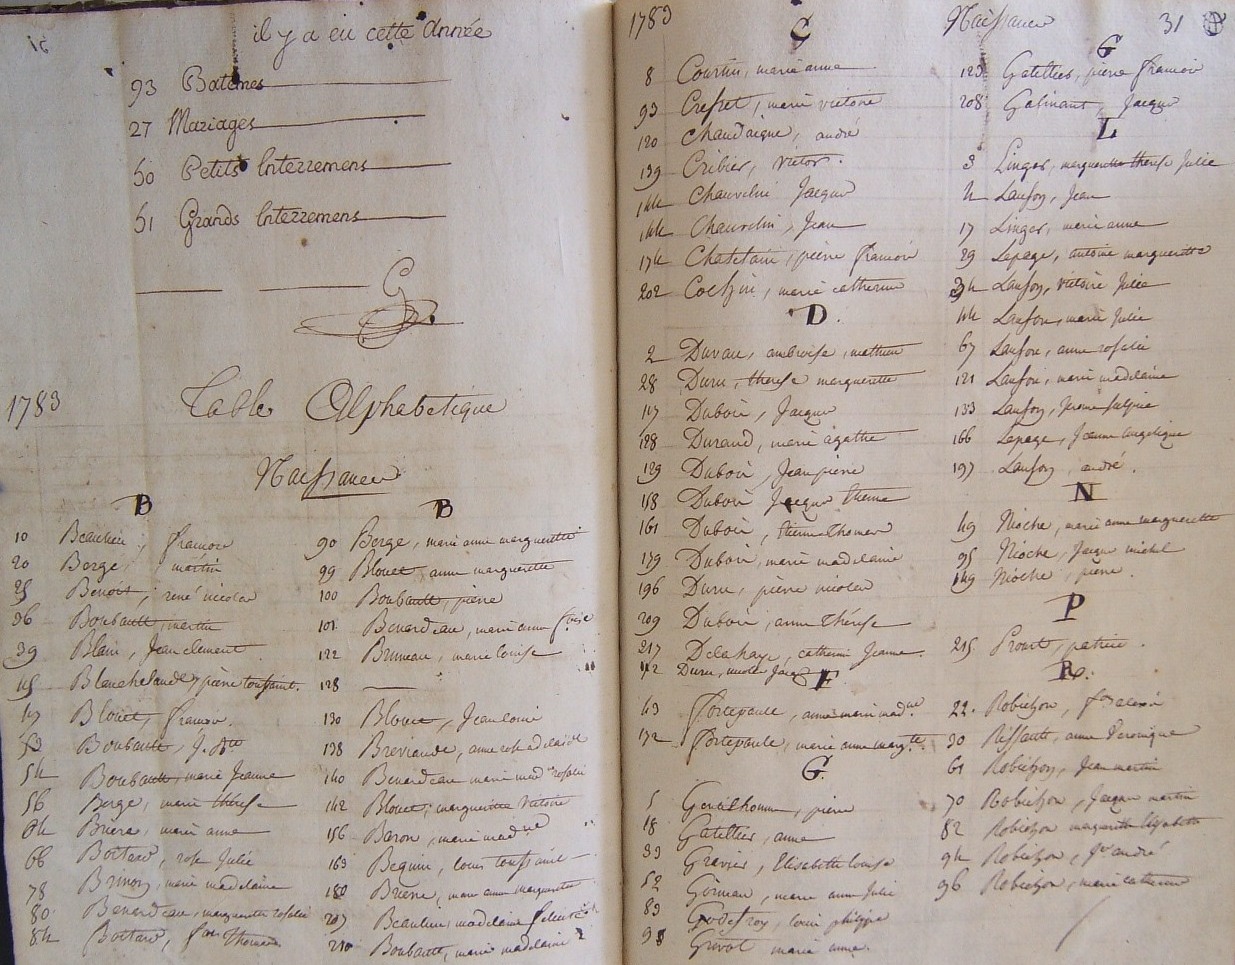 il y a eu cette Année
93 Batêmes
27 Mariages
60 Petits Interremens
61 Grands Interremens
G
1783 Table Alphabétique
Naissances
B
10 Beaulieu, francois
20 Bergé, martin
25 Benoit, rené nicolas
36 Boubault, martin
39 Blain, Jean clement
45 Blanchelande, pierre toussaint.
47 Blouet, francois.
53 Boubault, J. Bte
54 Boubault, marie Jeanne
56 Bergé, marie thérèse
64 Briere, marie anne
66 Boitard, rose Julie
78 Brinon, marie madelaine
80 Benardeau, margueritte rosalie
84 Boitard, fois Thomas
B
90 Bergé, marie anne margueritte
99 Blouet, anne margueritte
100 Boubault, pierre
101 Benardeau, marie anne foise
122 Bruneau, marie louise
128
130 Blouet, Jean louis
138 Breviande, anne rose adelaide
140 Benardeau marie mad. rosalie
142 Blouet, margueritte victoire
156 Baron, marie madne
163 Beguin, louis toussaint
180 Briere, marie anne margueritte
207 Beaulieu, madelaine felicité
210 Boubault, marie madelaine
1783 Naissances 31
C
8 Courtin, marie anne
93 marie victoire
120 Chaudaigue, andré
139 Cribier, victor.
144 Chauvelin Jacques
144 Chauvelin, Jean
174 Chatelain, pierre francois
202 marie catherine
D.
2 Duvau, ambroise, mathieu
28 Duru, therese margueritte
117 Dubois, Jacques
128 Durand, marie agathe
129 Dubois, Jean pierre
158 Dubois Jacques Etienne
161 Dubois, Etienne Thomas
179 Dubois, marie madelaine
196 Duru, pierre nicolas
209 Dubois, anne Thérèse
217 Delahaye, catherine Jeanne.
Duru, nicole
F
43 Fortepaule, anne marie madne.
172 Fortepaule, marie anne margte.
G.
5 Gentilhomme, pierre
18 Gatellier, anne
33 Gravier, Elisabeth louise
52 marie anne Julie
83 Godefroy, louis philippe
98 Guvot marie anne.
G
123 Gatellier, pierre francois
208 Galinant, Jacques
L
3 Linger, margueritte therese Julie
4 Laufon, Jean
17 Linger, marie anne
29 Lepage, antoine margueritte
34 Laufon, victoire Julie
44 Laufon, marie Julie
67 Laufon, anne rosalie
121 Laufon, marie madelaine
133 Laufon, Jerome sulpice
166 Lepage, Jeanne angelique
197 Laufon, andré.
N
49 Nioche, marie anne margueritte
95 Nioche, Jacques michel
149 Nioche, pierre.
P
215 Prout, patrice.
R.
22. Robichon, fois alexis
30 Riffault, anne veronique
61 Robichon, Jean martin
70 Robichon, Jacques martin
82 Robichon margueritte Elizabeth
94 Robichon, andré
96 Robichon, marie catherine